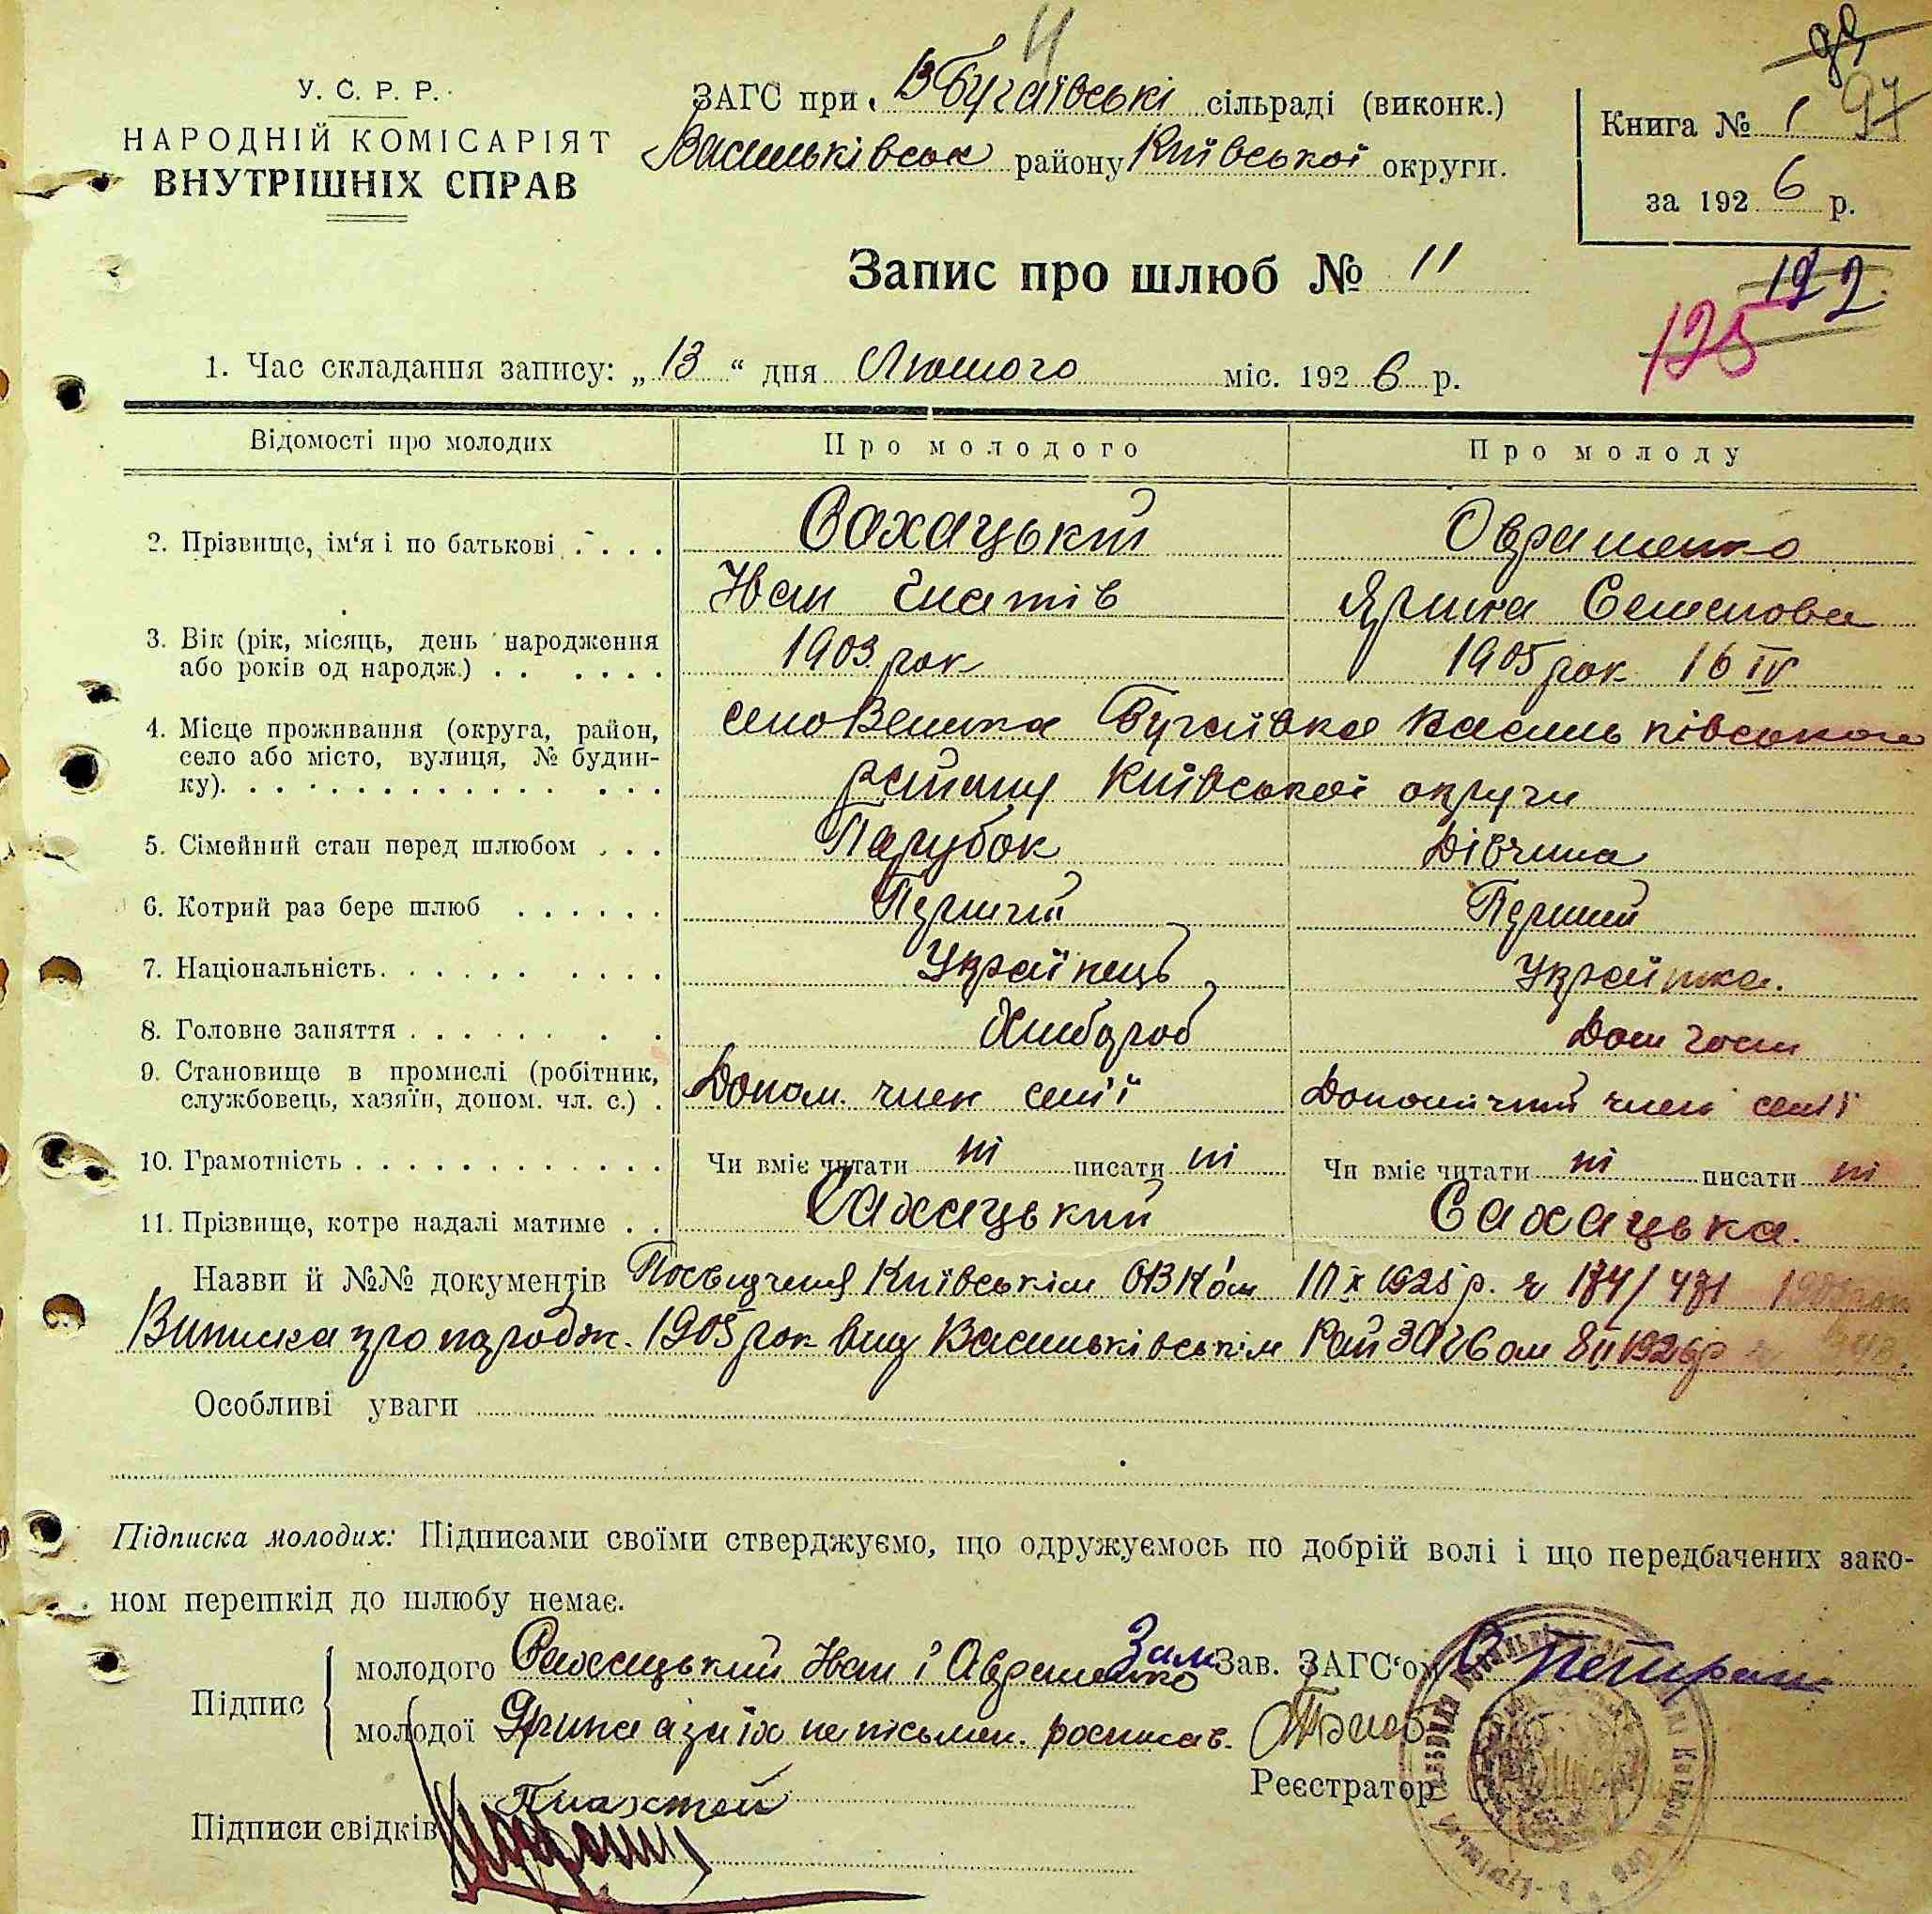 У. С. Р. Р.
НАРОДНІЙ КОМІСАРІЯТ
ВНУТРІШНІХ СПРАВ
ЗАГС при В Бугаївські сільраді (виконк.)
Васильківськ району Київської округи.
Книга № 1 97
за 1926 р.
Запис про шлюб № 11
122
125
1. Час складання запису: „13“ дня Лютого міс. 1926 р.
Відомості про молодих Про молодого Про молоду
2. Прізвище, ім‘я і по батькові . . . . Сахацький Овраменко
Иван Гнатів Ярина Семенова
3. Вік (рік, місяць, день народження або років од народж.) . . . . . . 1903 рок 1905 рок 16 IV
4. Місце проживання (округа, район, село або місто, вулиця, № будинку). село Велика Бугаївка Васильківського
району Київської округи
5. Сімейний стан перед шлюбом . . . Парубок Дівчина
6. Котрий раз бере шлюб . . . . . . Перший Перший
7. Національність. . . . . . . . . . Українець Українка.
8. Головне заняття . . . . . . . . Хлибороб Дом госп
9. Становище в промислі (робітник, службовець, хазяїн, допом. чл. с.) . Допом. член семії Допомічний член семії
10. Грамотність . . . . . . . . . . . . . Чи вміє читати ні писати ні Чи вміє читати ні писати ні
11. Прізвище, котре надалі матиме . . Сахацький Сахацька.
Назви й №№ документів Посвидчення Київським ОВК 1925 р. 174/471
Виписка про народж. 1905 рок вид Васильківським Рай ЗАГСом 8 II 1926 р
Особливі уваги
Підписка молодих: Підписами своїми стверджуємо, що одружуємось по добрій волі і що передбачених зако-
ном перешкід до шлюбу немає.
Підпис молодого Сахацький Иван і Авраменко Зам Зав. ЗАГС‘ом
молодої Ярина а за їх неписьмен. росписав.
Реєстратор
Підписи свідків